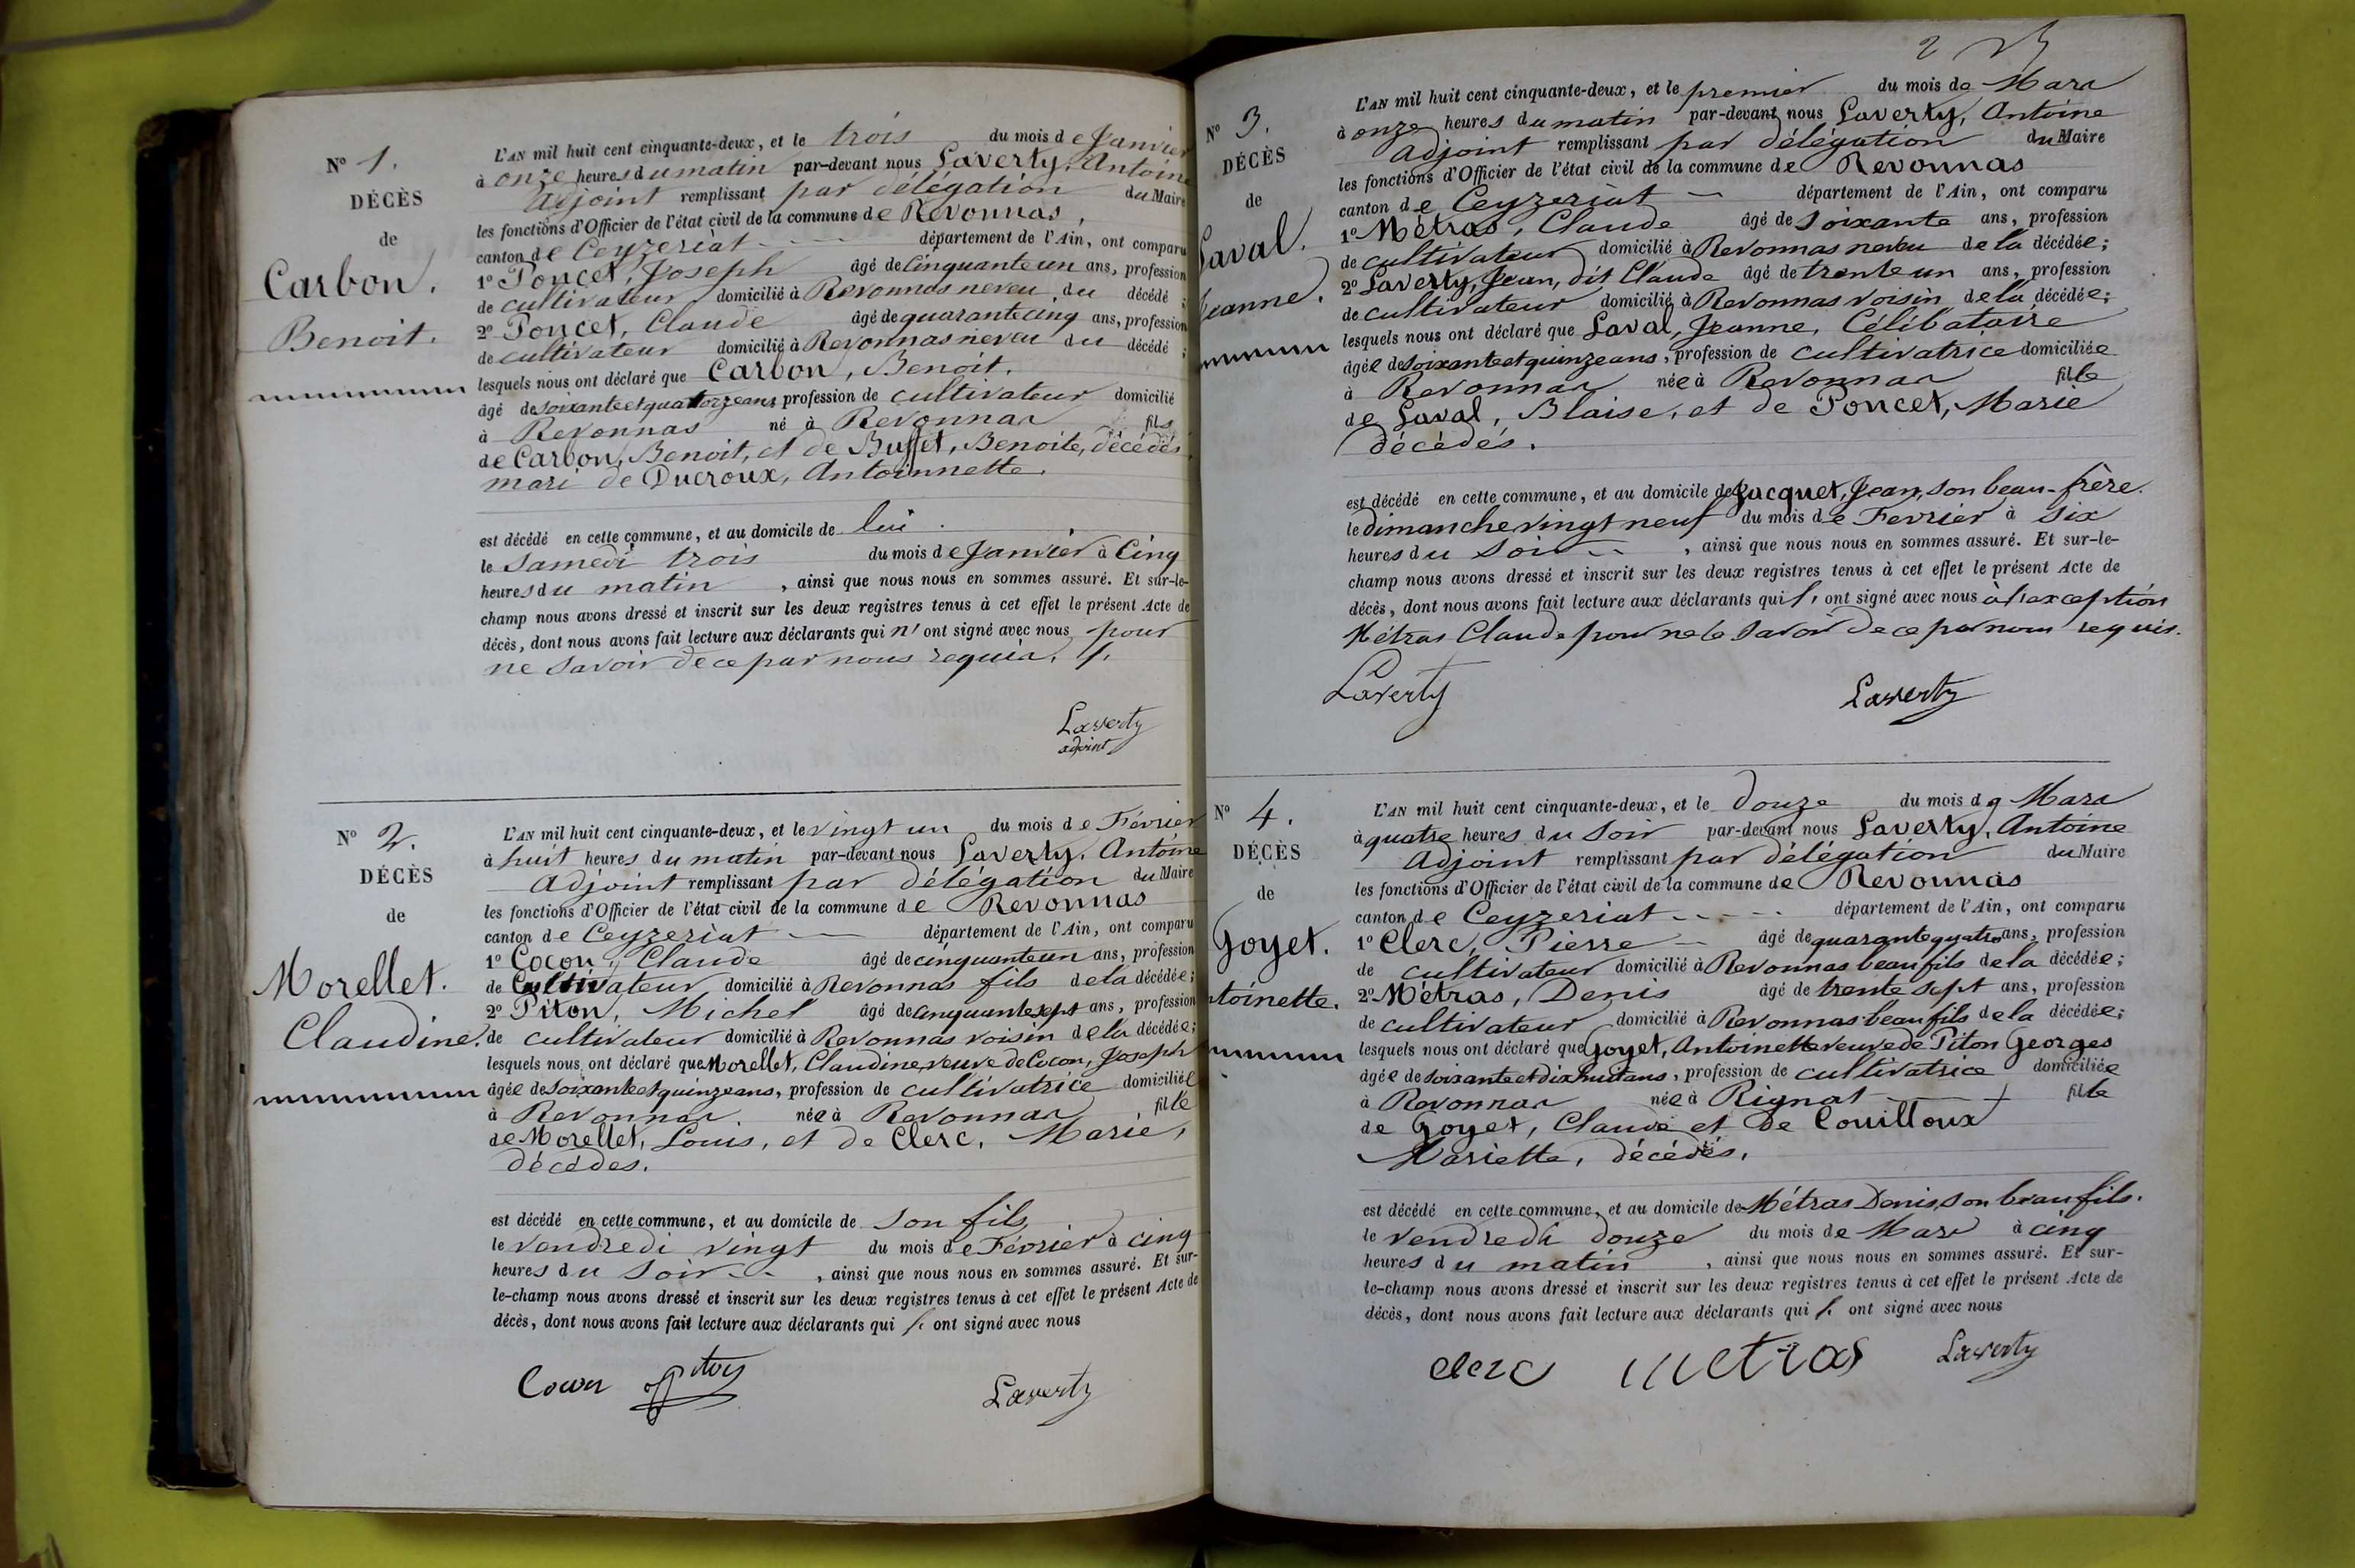 N° 1.
DÉCÈS
de
Carbon.
Benoit.
L'AN mil huit cent cinquante-deux, et le trois du mois de Janvier
à onze heures du matin par-devant nous Laverty, Antoine
Adjoint remplissant par délégation du Maire
les fonctions d'Officier de l'état civil de la commune de Revonnas,
canton de Ceyzeriat département de l'Ain, ont comparu
1° Poncet, Joseph âgé de Cinquante un ans, profession
de cultivateur domicilié à Revonnas neveu du décédé ;
2° Poncet, Claude âgé de quarante cinq ans, profession
de cultivateur domicilié à Revonnas neveu du décédé ;
lesquels nous ont déclaré que Carbon, Benoit.
âgé de soixante et quatorze ans, profession de cultivateur domicilié
à Revonnas né à Revonnas fils
de Carbon, Benoit, et de Buffet, Benoite, décédés
mari de Ducroux, Antoinnette.
est décédé en cette commune, et au domicile de lui.
le Samedi trois du mois de Janvier à Cinq
heures du matin, ainsi que nous nous en sommes assuré. Et sur-le-
champ nous avons dressé et inscrit sur les deux registres tenus à cet effet le présent Acte de
décès, dont nous avons fait lecture aux déclarants qui n'ont signé avec nous pour
ne savoir de ce par nous requis.
Laverty
adjoint
N° 2.
DÉCÈS
de
Morellet.
Claudine.
L'AN mil huit cent cinquante-deux, et le vingt un du mois de Février
à huit heures du matin par-devant nous Laverty, Antoine
Adjoint remplissant par délégation du Maire
les fonctions d'Officier de l'état civil de la commune de Revonnas
canton de Ceyzeriat département de l'Ain, ont comparu
1° Cocon, Claude âgé de cinquante un ans, profession
de Cultivateur domicilié à Revonnas fils de la décédée ;
2° Piton, Michel âgé de cinquante sept ans, profession
de cultivateur domicilié à Revonnas voisin de la décédée ;
lesquels nous ont déclaré que Morellet, Claudine, veuve de Cocon, Joseph
âgée de soixante et quinze ans, profession de cultivatrice domiciliée
à Revonnas. née à Revonnas, fille
de Morellet, Louis, et de Clerc, Marie,
décédés.
est décédé en cette commune, et au domicile de son fils,
le vendredi vingt du mois de Février à cinq
heures du soir, ainsi que nous nous en sommes assuré. Et sur-
le-champ nous avons dressé et inscrit sur les deux registres tenus à cet effet le présent Acte de
décès, dont nous avons fait lecture aux déclarants qui ont signé avec nous
Cocon Piton
Laverty
2
N° 3.
DÉCÈS
de
Laval.
Jeanne.
L'AN mil huit cent cinquante-deux, et le premier du mois de Mars
à onze heures du matin par-devant nous Laverty, Antoine
Adjoint remplissant par délégation du Maire
les fonctions d'Officier de l'état civil de la commune de Revonnas
canton de Ceyzeriat département de l'Ain, ont comparu
1° Métras, Claude âgé de soixante ans, profession
de cultivateur domicilié à Revonnas neveu de la décédée ;
2° Laverty, Jean, dit Claude âgé de trente un ans, profession
de cultivateur domicilié à Revonnas voisin de la décédée ;
lesquels nous ont déclaré que Laval, Jeanne, Célibataire
âgée de soixante et quinze ans, profession de cultivatrice domiciliée
à Revonnas née à Revonnas fille
de Laval, Blaise, et de Poncet, Marie
décédés.
est décédé en cette commune, et au domicile de Jacquet, Jean, son beau-frère.
le dimanche vingt neuf du mois de Fevrier à six
heures du soir, ainsi que nous nous en sommes assuré. Et sur-le-
champ nous avons dressé et inscrit sur les deux registres tenus à cet effet le présent Acte de
décès, dont nous avons fait lecture aux déclarants qui ont signé avec nous à l'exception
Métras Claude pour ne le savoir de ce par nous requis.
Laverty Laverty
N° 4.
DÉCÈS
de
Goyet.
toinette.
L'AN mil huit cent cinquante-deux, et le Douze du mois de Mars
à quatre heures du soir par-devant nous Laverty, Antoine
Adjoint remplissant par délégation du Maire
les fonctions d'Officier de l'état civil de la commune de Revonnas
canton de Ceyzeriat département de l'Ain, ont comparu
1° Clerc, Pierre âgé de quarante quatre ans, profession
de cultivateur domicilié à Revonnas beau fils de la décédée ;
2° Métras, Denis âgé de trente sept ans, profession
de cultivateur domicilié à Revonnas beau fils de la décédée ;
lesquels nous ont déclaré que Goyet, Antoinette veuve de Piton Georges
âgée de soixante et dix huit ans, profession de cultivatrice domiciliée
à Revonnas née à Rignat fille
de Goyet, Claude et de Couilloux
Mariette, décédés.
est décédé en cette commune, et au domicile de Métras Denis, son beau fils.
le vendredi douze du mois de Mars à cinq
heures du matin, ainsi que nous nous en sommes assuré. Et sur-
le-champ nous avons dressé et inscrit sur les deux registres tenus à cet effet le présent Acte de
décès, dont nous avons fait lecture aux déclarants qui ont signé avec nous
clerc metras Laverty